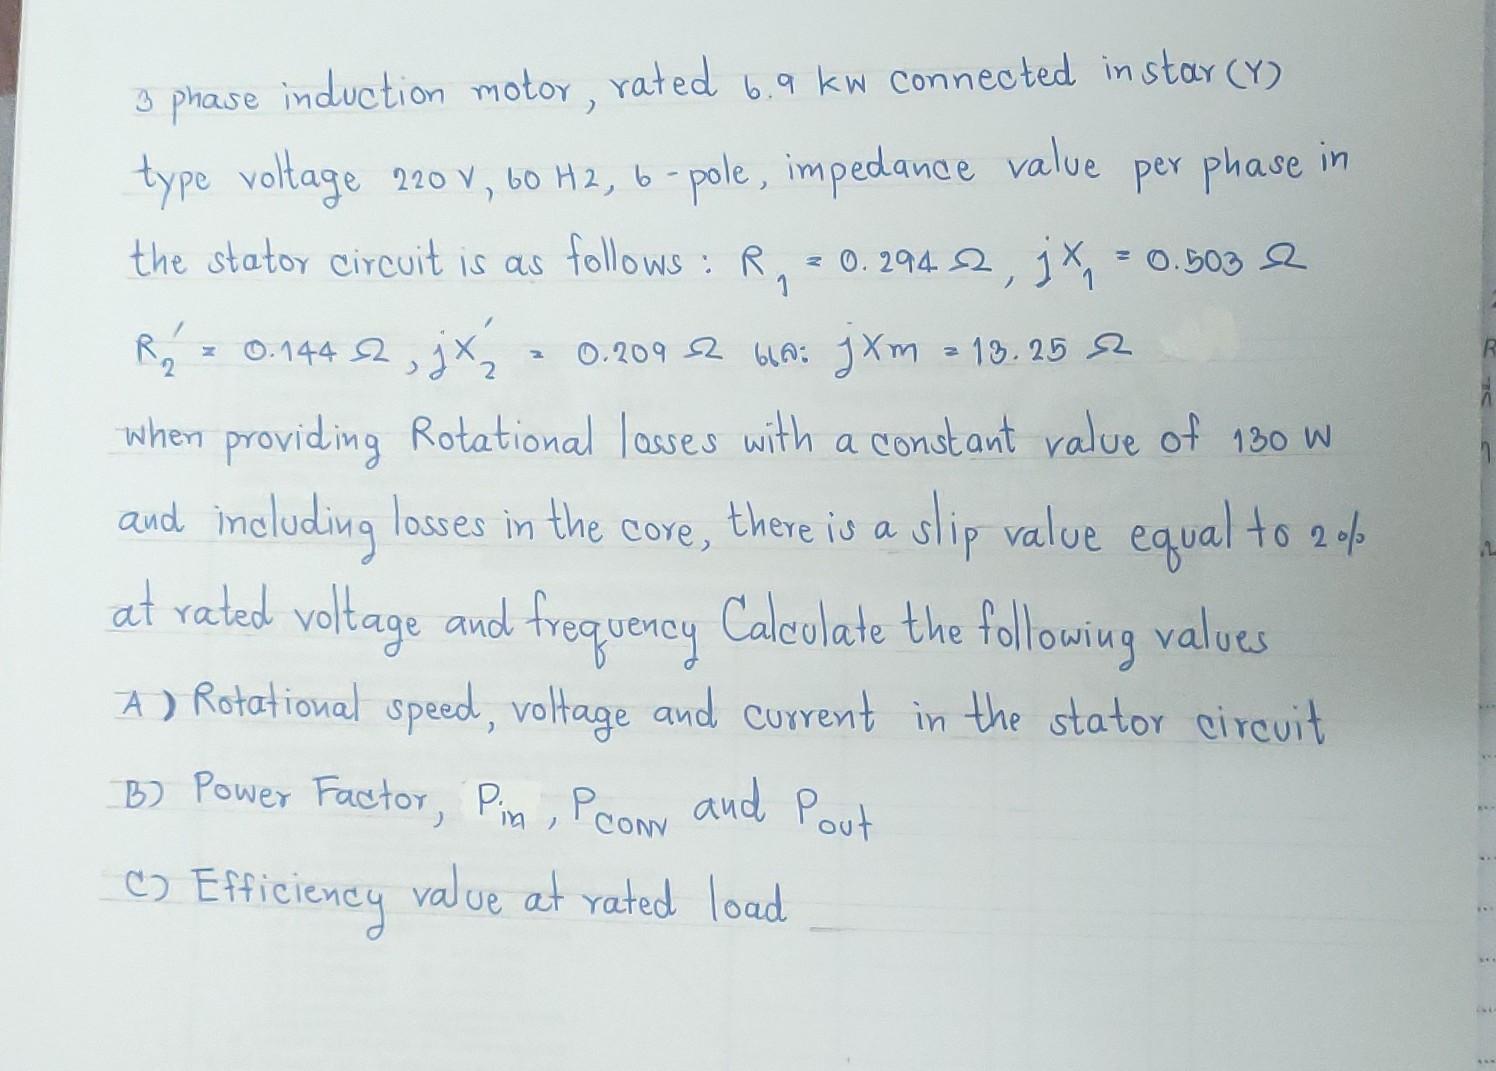 3 phase induction motor, rated 6.9 kw connected in star (Y)
type voltage 220 V, 60 Hz, 6-pole, impedance value per phase in
the stator circuit is as follows : R₁ = 0.294 Ω, jX₁ = 0.503 Ω
R₂′ = 0.144 Ω, jX₂′ = 0.209 Ω และ jXm = 13.25 Ω
when providing Rotational losses with a constant value of 130 W
and including losses in the core, there is a slip value equal to 2%
at rated voltage and frequency Calculate the following values
A) Rotational speed, voltage and current in the stator circuit
B) Power Factor, Pin, Pconv and Pout
C) Efficiency value at rated load